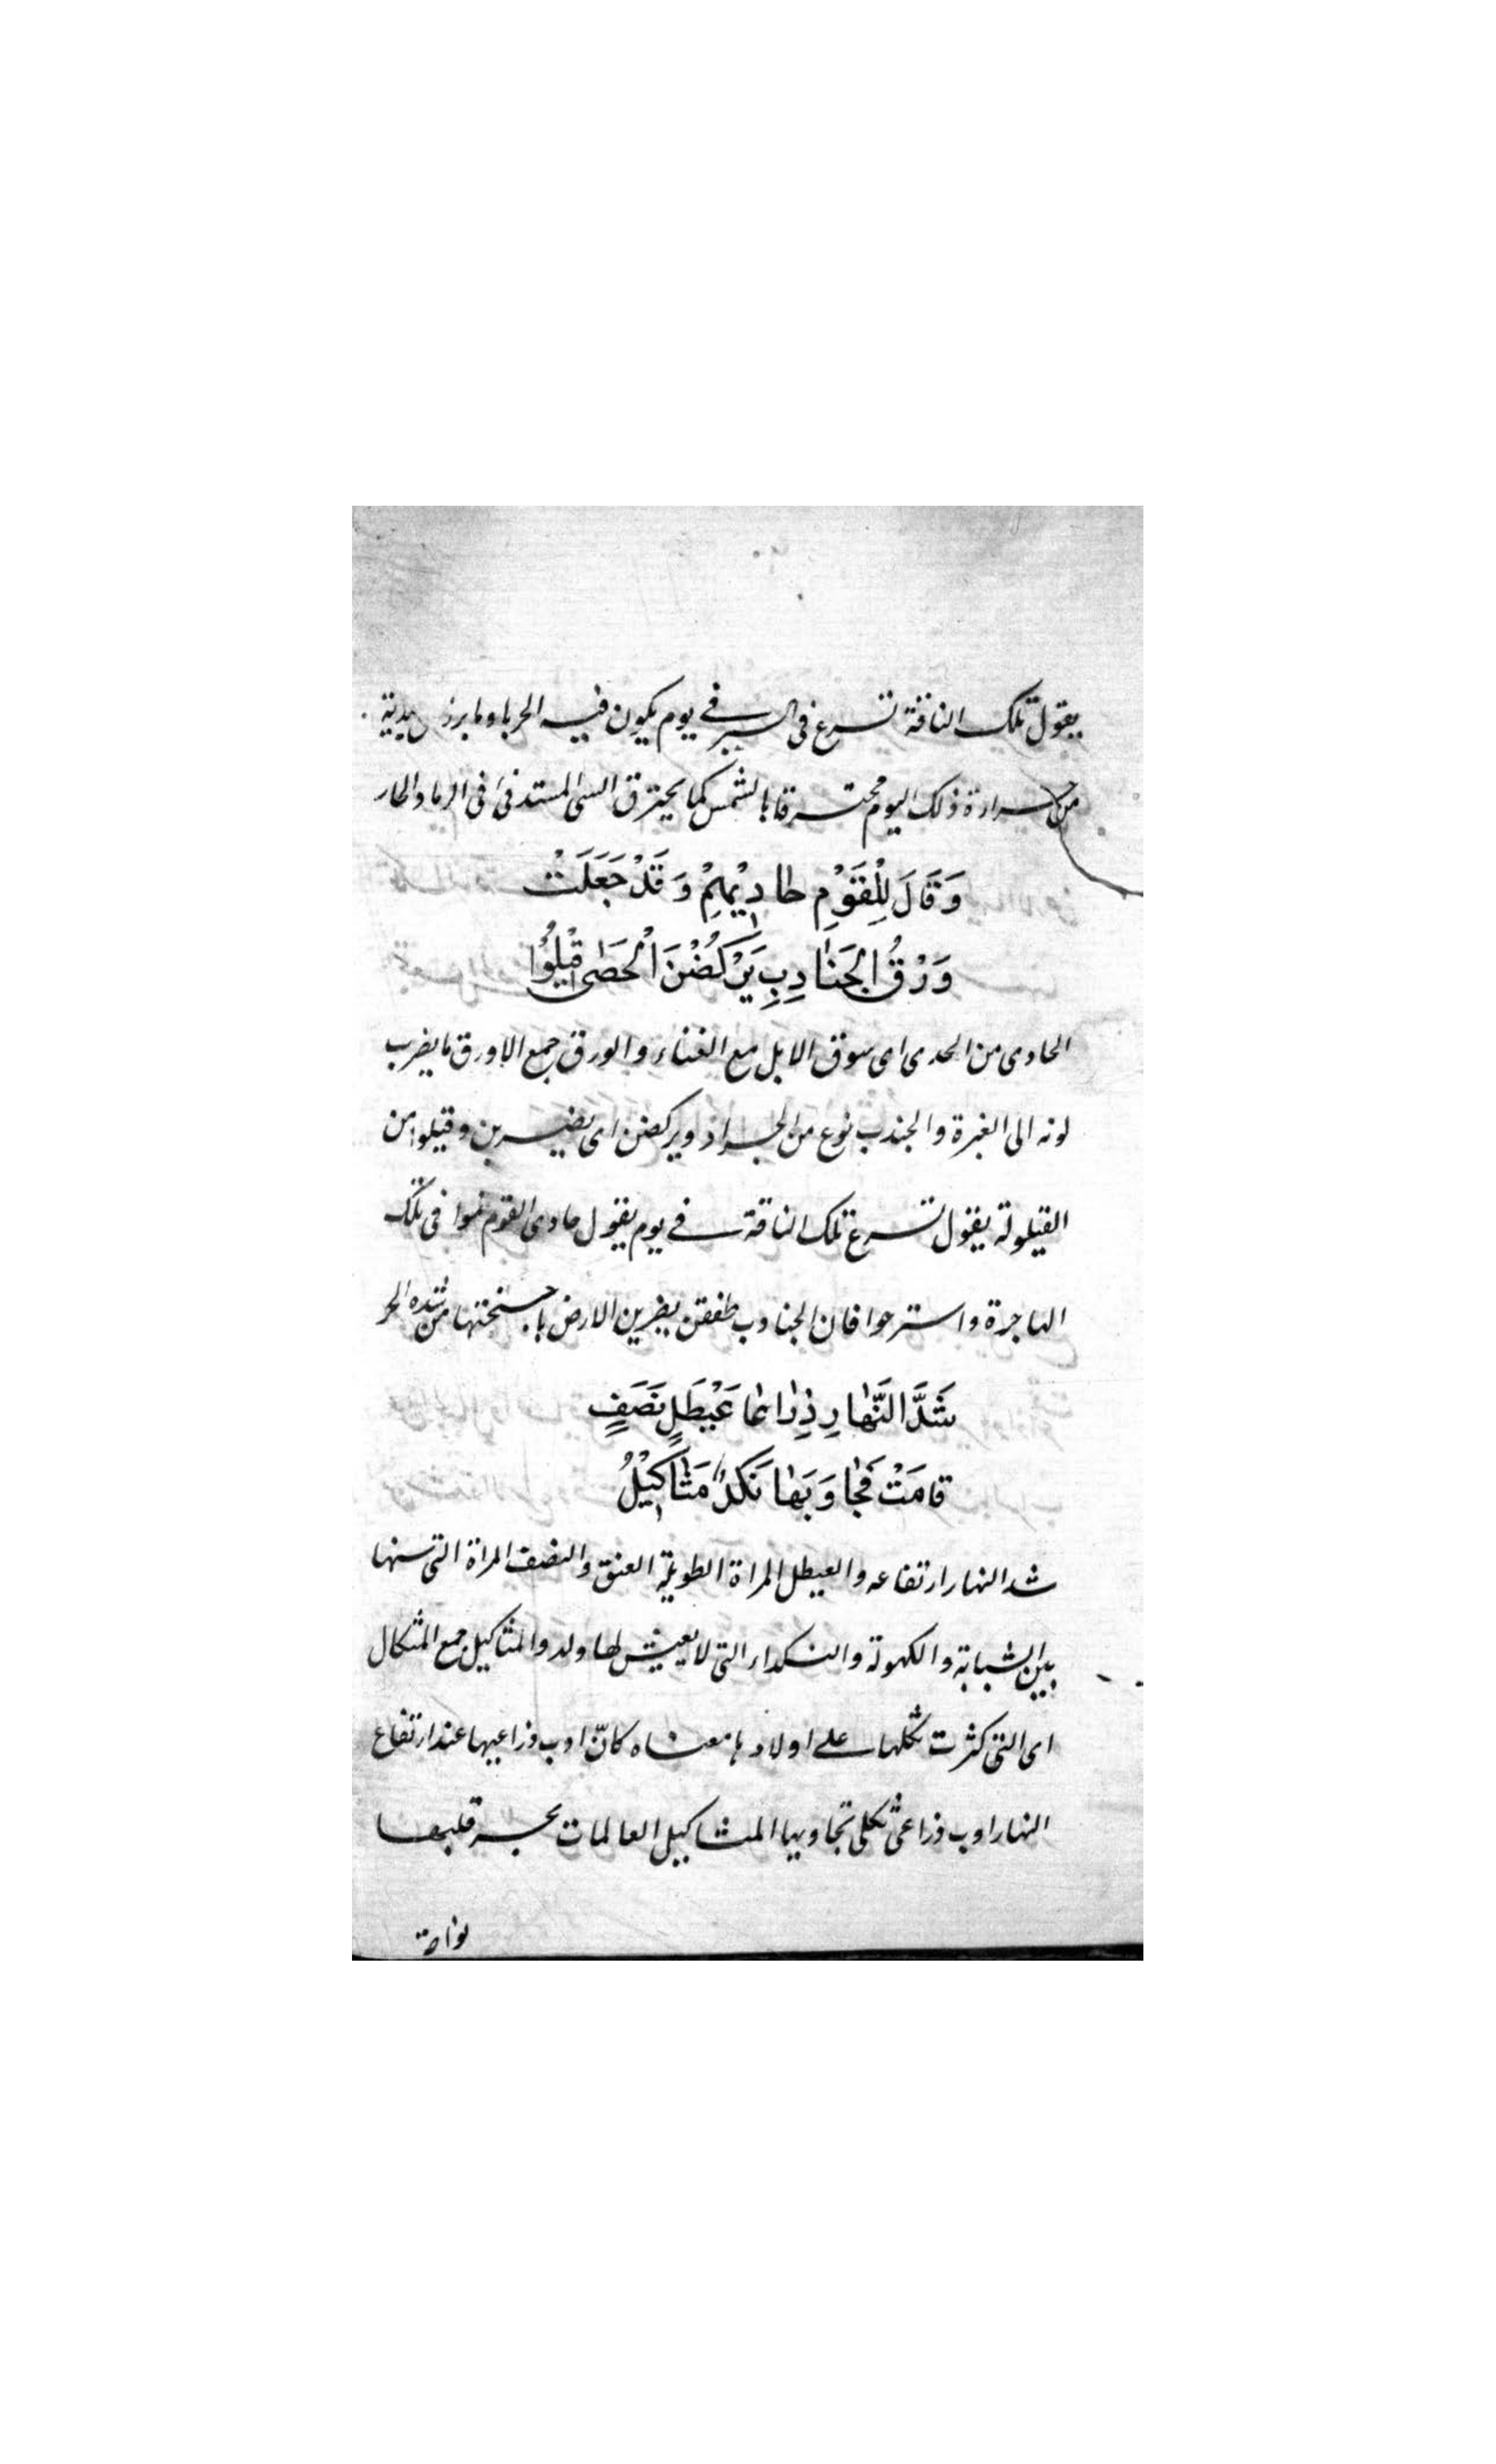 يقول تلك الناقة تسرع فى السير فے يوم يكون فيه الحربا وما برز بدنه
من حرارة ذلك اليوم محترقا بالشمس كما يحترق الشى المستدفئ فى الرماد الحار
وَقَالَ لِلْقَوْمِ حَادِيْهِمْ وَقَدْ جَعَلَتْ
وَرْقُ الْجَنَادِبِ يَرْكُضْنَ الْحَصٰى قِيْلُوْا
الحادى من الحدى اى سوق الابل مع الغناء والورق جمع الاورق ما يضرب
لونه الى الغبرة والجندب نوع من الجراد ويركضن اى يضربن وقيلوا من
القيلولة يقول تسرع تلك الناقة فے يوم يقول حادى القوم نموا فى تلك
الهاجرة واسترحوا فان الجنادب طفقن يضربن الارض باجنحتها من شده الحر
شَدَّ النَّهَارِ ذِرَاعَا عَيْطَلٍ نَصَفٍ
قَامَتْ فَجَاوَبَهَا نَكْدٌ مَثَاكِيْلُ
شد النهار ارتفاعه والعيطل المراة الطويلة العنق والنصف المراة التى سنها
بين الشبابة والكهولة والنكداء التى لا يعيش لها ولد والمثاكيل جمع المثكال
اى التى كثرت ثكلها على اولادها معناه كانّ اوب ذراعيها عند ارتفاع
النهار اوب ذراعى ثكلى تجاوبها المثاكيل العالمات بحر قلبها
نواحة